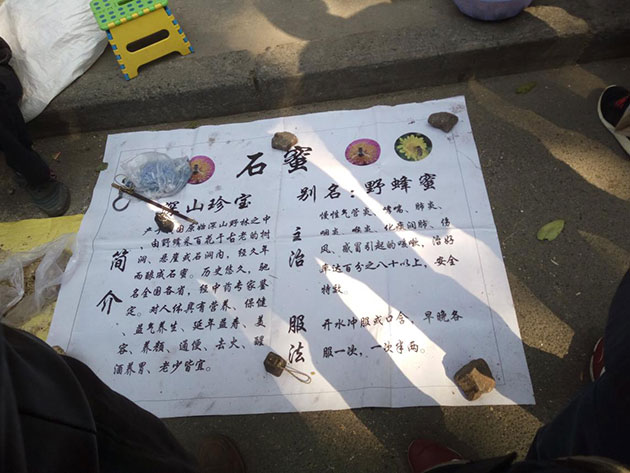 石蜜
深山珍宝
别名：野蜂蜜
简介
国原始深山野林之中
由野蜂采百花于古老的树
洞、悬崖或石洞内，经久年
而酿成石蜜。历史悠久，驰
名全国各省，经中药专家鉴
定，对人体具有营养、保健
、益气养生、延年益寿、美
容、养颜、通便、去火、醒
酒养胃、老少皆宜。
主治
慢性气管炎、哮喘、肺炎、
咽炎、喉炎、化痰润肺、伤
风、感冒引起的咳嗽，治好
率达百分之八十以上，安全
特效
服法
开水冲服或口含，早晚各
服一次，一次半两。